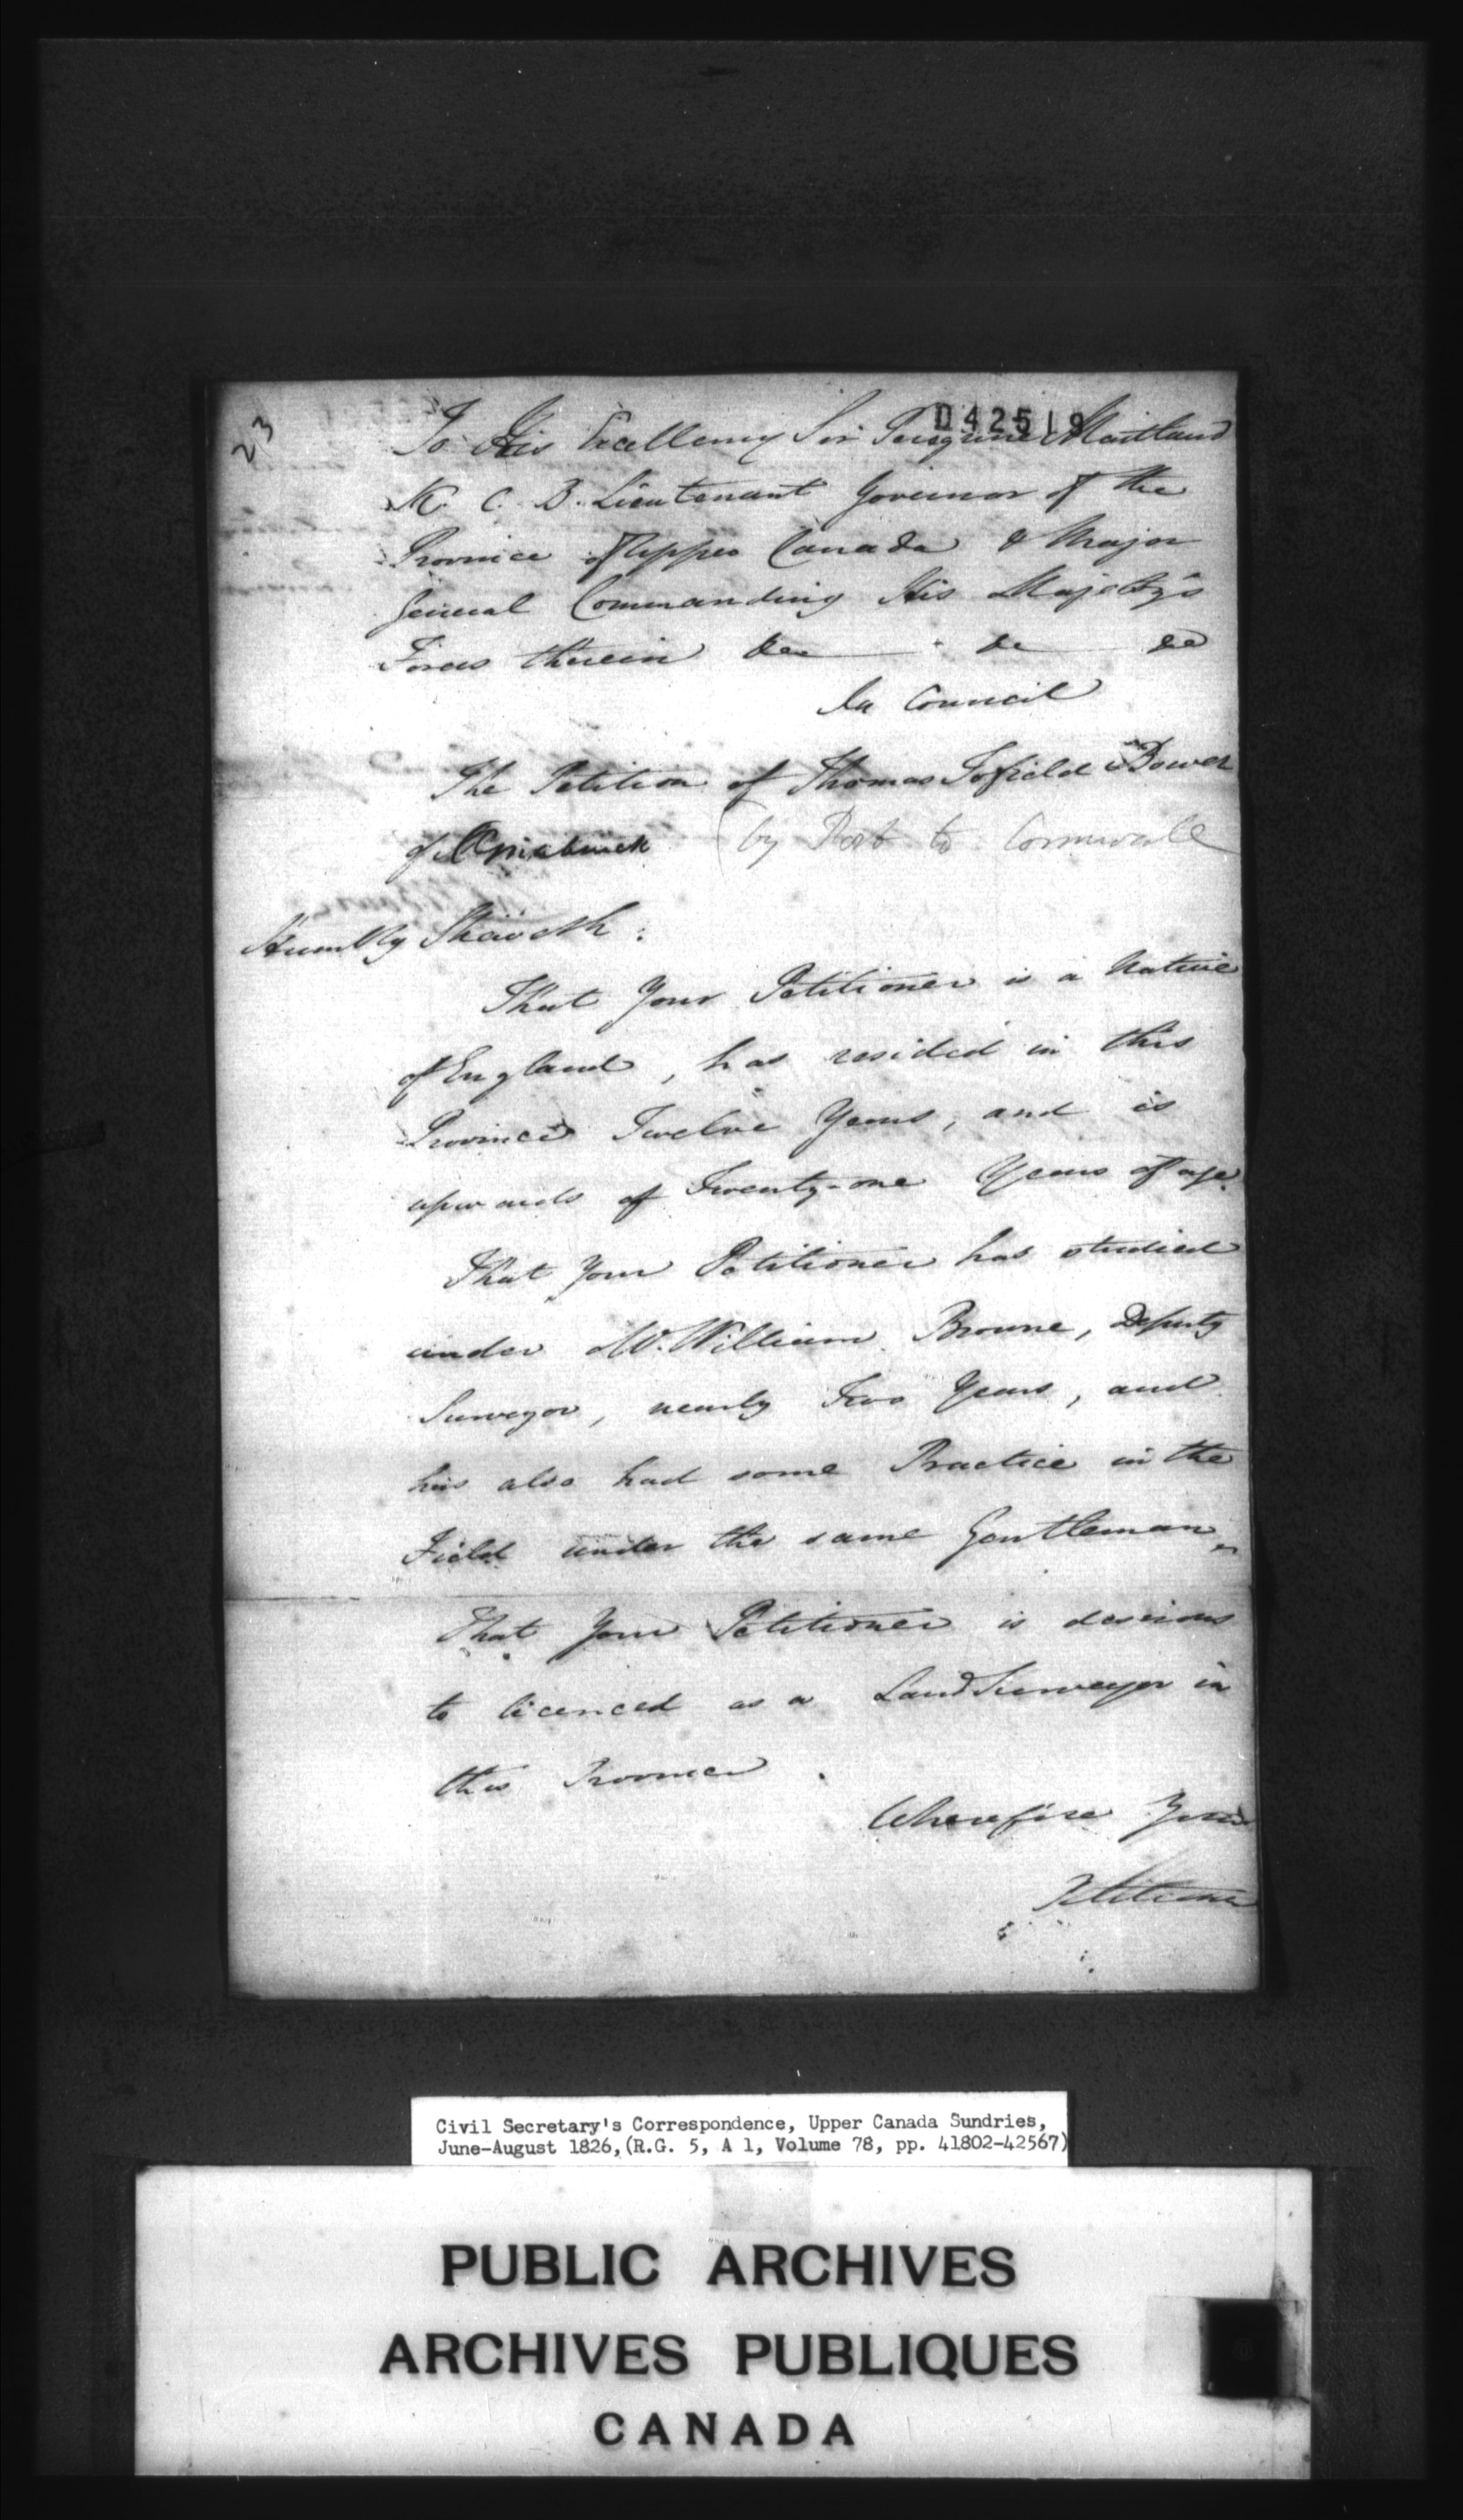 23
042519
To His Excellency Sir Peregrine Maitland
K. C. B. Lieutenant Governor of the
Province of Upper Canada & Major
General Commanding His Majesty's
Forces therein &c &c &c
In Council
The Petition of Thomas Tofield Bower
of Osnabruck (by Post to Cornwall
Humbly Sheweth:
That Your Petitioner is a Native
of England, has resided in this
Province Twelve Years, and is
upwards of Twenty-one Years of age.
That Your Petitioner has studied
under Mr. William Browne, Deputy
Surveyor, nearly Two Years, and
has also had some Practice in the
Field under the same Gentleman
That Your Petitioner is desirous
to licenced as a Land Surveyor in
this Province.
Wherefore Your
Petitioner
Civil Secretary's Correspondence, Upper Canada Sundries,
June-August 1826,(R.G. 5, A 1, Volume 78, pp. 41802-42567)
PUBLIC ARCHIVES
ARCHIVES PUBLIQUES
CANADA